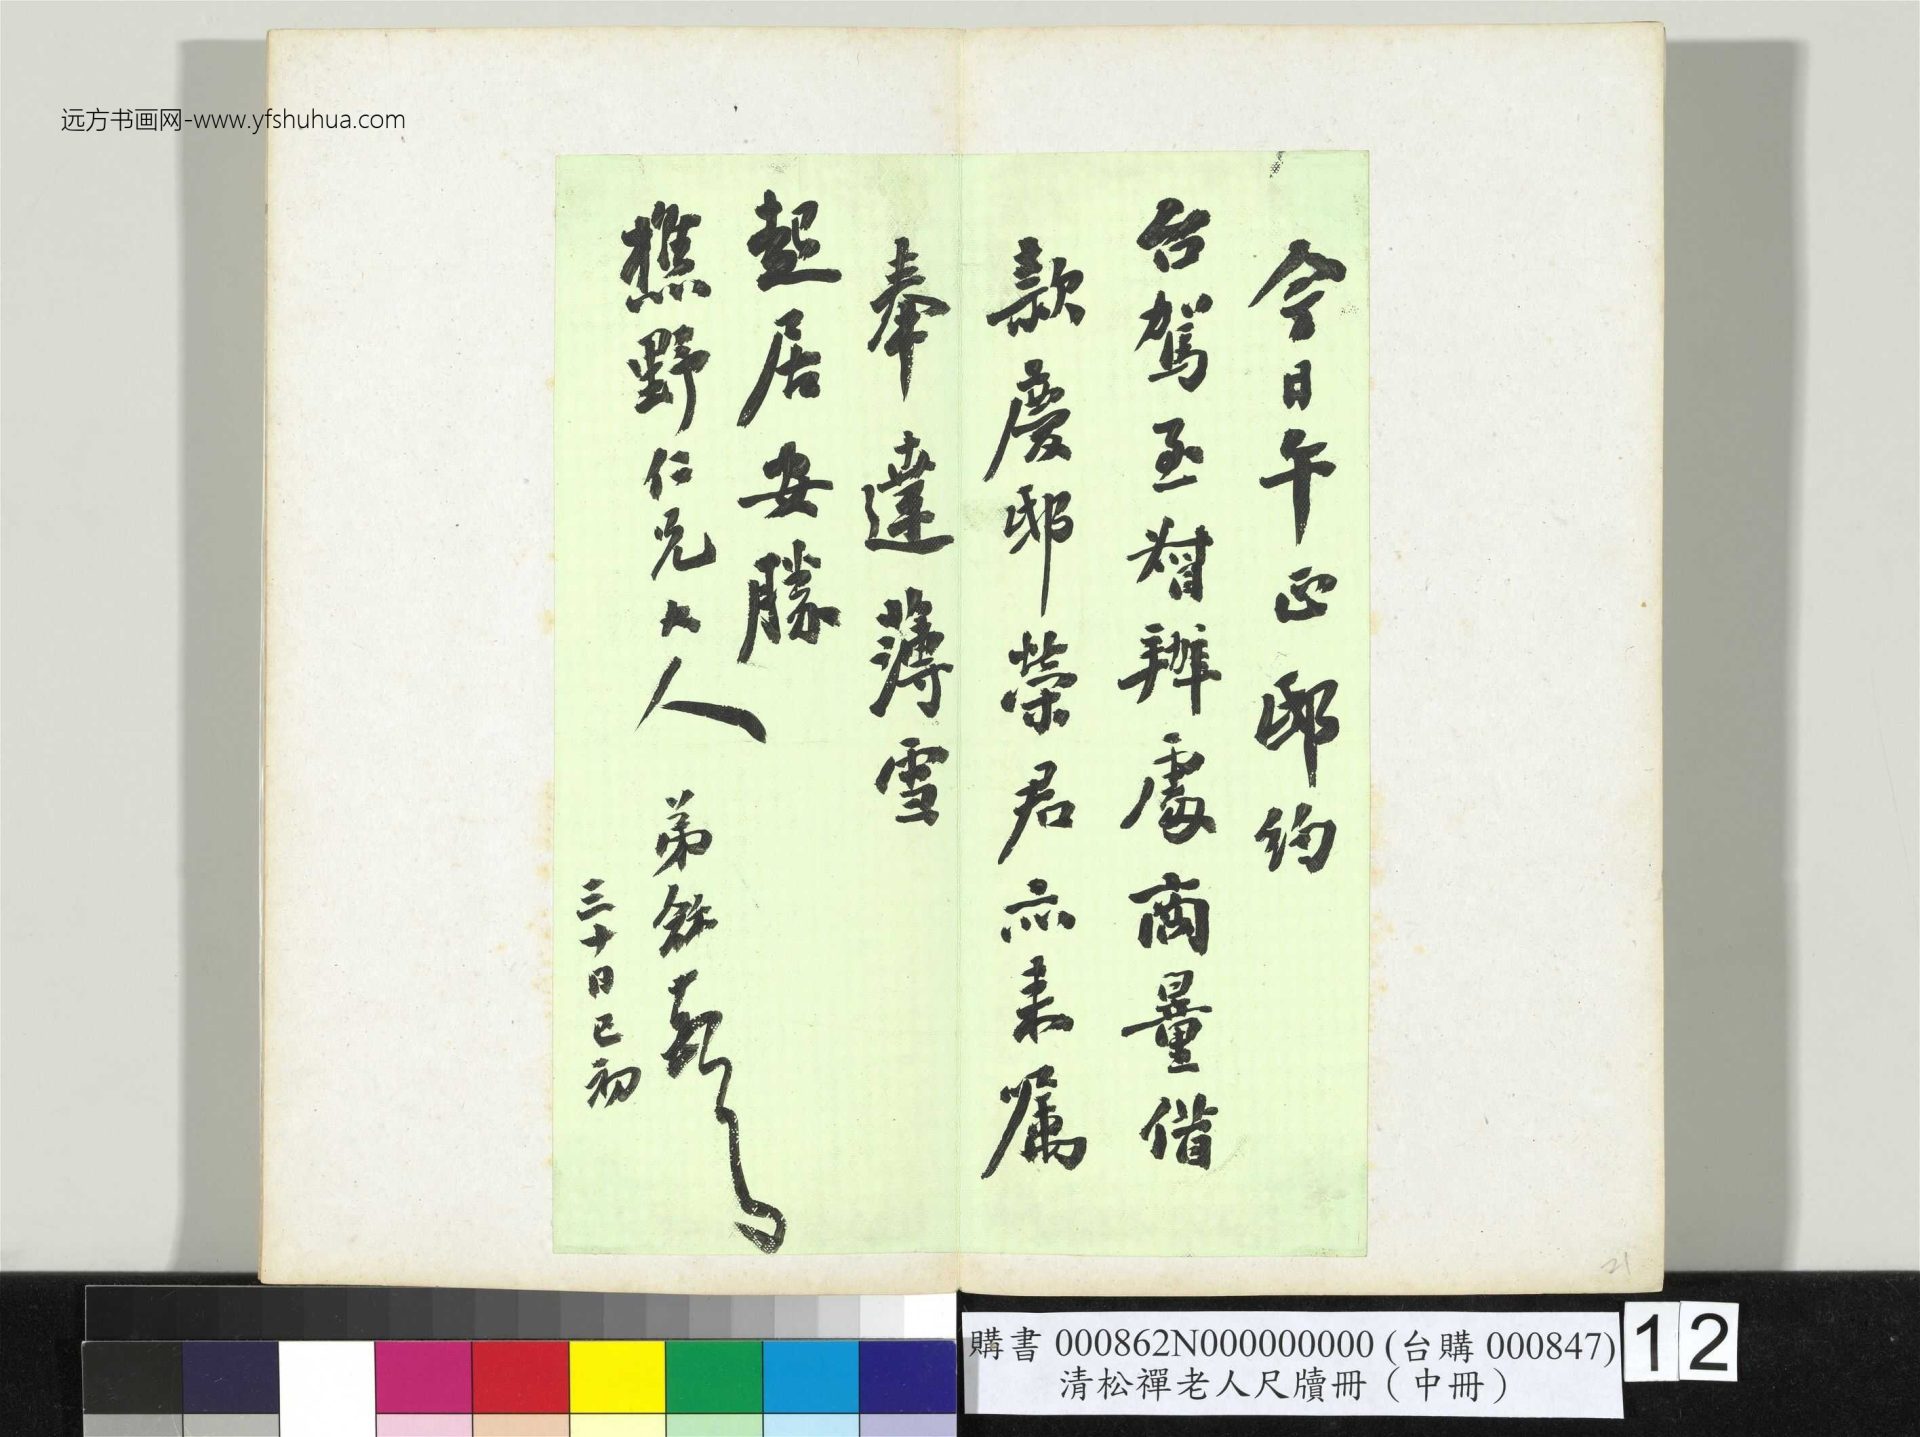 今日午正邸約
台駕至督辦處商量借
款慶邸榮君亦来嘱
奉達薄雪
起居安勝
樵野仁兄大人
弟龢
三十日巳初
远方书画网-www.yfshuhua.com
購書 000862N000000000 (台購 000847)
清松禪老人尺牘冊（中冊）
12
21